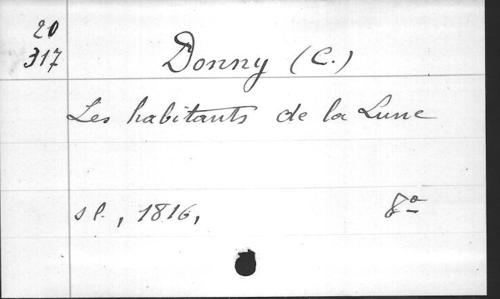 20
317
Donny (C.)
Les habitants de la Lune
s l., 1816, 8º